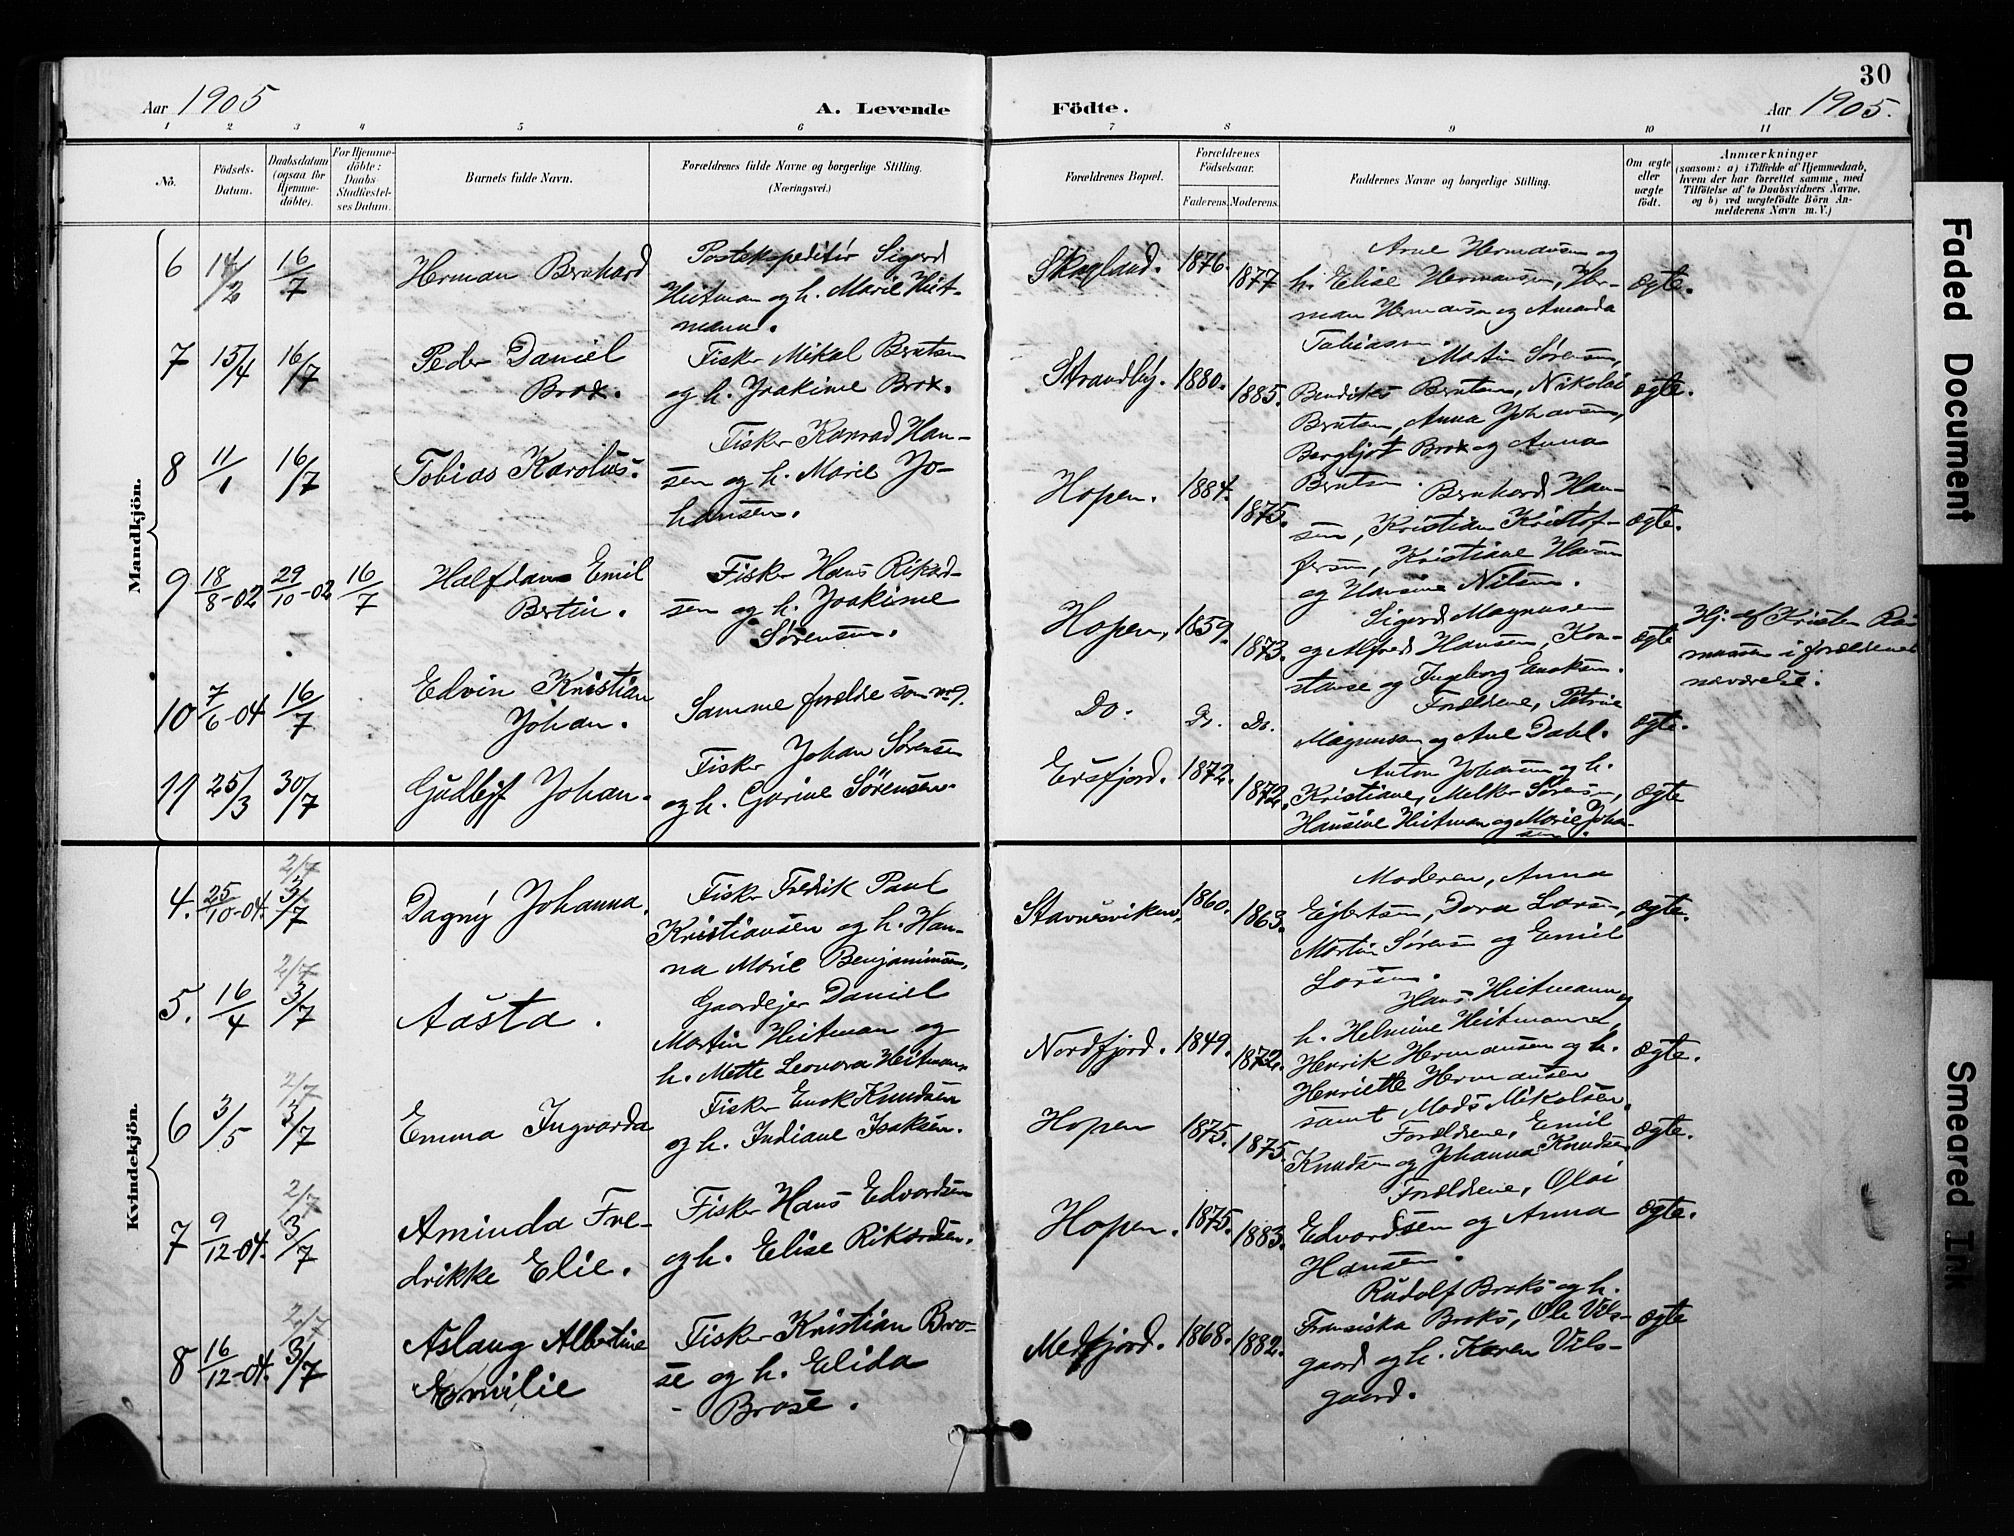 30
Aar 1905
A. Levende
Födte.
Aar 1905.
1 2 3 4 5 6 7 8 9 10 11
No.
Födsels-
Datum.
Daabsdatum
(ogsaa for
Hjemme-
döbte).
For Hjemme-
döbte:
Daabs-
Stadfæstel-
ses Datum.
Barnets fulde Navn.
Forældrenes fulde Navne og borgerlige Stilling.
(Næringsvei.)
Forældrenes Bopæl.
Forældrenes
Födselsaar.
Faderens.
Moderens.
Faddernes Navne og borgerlige Stilling.
Om ægte
eller
uægte
født.
Anmærkninger
(saasom: a) i Tilfælde af Hjemmedaab,
hvem der har forrettet samme, med
Tilföielse af to Daabsvidners Navne,
og b) ved uægtefödte Börn An-
melderens Navn m. V.)
Mandkjön.
6 14/2 16/7
Herman Bernhard
Postekspeditør Sigurd
Heitman og h. Marie Heit-
mann.
Skogland. 1876. 1877
Arne Hermansen og
h. Elise Hermansen, Her-
man Hermansen og Amanda
Tobiasen.
ægte.
7 15/4 16/7
Peder Daniel
Brox.
Fisker Mikal Berntsen
og h. Joakime Brox.
Strandby. 1880. 1885.
Martin Sørensen,
Bendiks Berntsen, Nikolai
Berntsen, Anna Johansen,
Bergljot Brox og Anna
Berntsen.
ægte.
8 11/1 16/7
Tobias Karolus.
Fisker Konrad Han-
sen og h. Marie Jo-
hansen.
Hopen. 1884. 1875.
Bernhard Han-
sen, Kristian Kristof-
fersen, Kristiane Hansen
og Hansine Nilsen.
ægte.
9 18/8-02 29/10-02 16/7
Halfdan Emil
Bertin.
Fisker Hans Rikard-
sen og h. Joakime
Sørensen.
Hopen, 1859. 1873.
Sigurd Magnusen
og Alfred Hansen, Kon-
stanse og Ingeborg Enoksen.
ægte
Hj. af Kristen
i forældrenes
nærværelse.
10 7/6-04 16/7
Edvin Kristian
Johan.
Samme forældre som no 9.
Do. Do. Do.
Forældrene, Petrine
Magnussen og Ane Dahl.
ægte.
11 25/3 30/7
Johan.
Fisker Johan Sørensen
og h. Gorine Sørensen.
Ersfjord. 1872. 1872.
Anton Johansen og h.
Kristiane, Melker Sørensen,
Hansine Heitman og Marie Johan-
sen.
ægte
Kvindekjön.
4. 25/10-04. 2/7 3/7
Dagny Johanna.
Fisker Fredrik Paul
Kristiansen og h. Han-
na Marie Benjaminsen.
Stavnesviken. 1860. 1863.
Moderen, Anna
Ejbertsen, Dora Larsen,
Martin Sørensen og Emil
Larsen.
ægte.
5. 16/4 2/7 3/7
Aasta.
Gaardejer Daniel
Martin Heitman og
h. Mette Leonora Heitman.
Nordfjord. 1849. 1872.
Hans Heitmann og
h. Helmine Heitmann,
Henrik Hermansen og h.
Henriette Hermansen
samt Mads Mikalsen.
ægte.
6 3/5 2/7 3/7
Emma Ingvarda
Fisker Enok Knudsen
og h. Indiane Isaksen.
Hopen 1875. 1875.
Forældrene, Emil
Knudsen og Johanna Knudsen
ægte.
7 9/12-04. 2/7 3/7
Aminda Fre-
drikke Elie.
Fisker Hans Edvardsen
og h. Elise Rikardsen.
Hopen. 1875. 1883.
Forældrene, Olai
Edvardsen og Anna
Hansen.
ægte.
8 16/12-04. 2/7 3/7
Aslaug Albertine
Emilie
Fisker Kristian Bro-
se og h. Elida
Brose.
Medfjord. 1868. 1882.
Rudolf Broks og h.
Fransiska Broks, Ole Vils-
gaard og h. Karen Vils-
gaard.
ægte
Faded Document
Smeared Ink